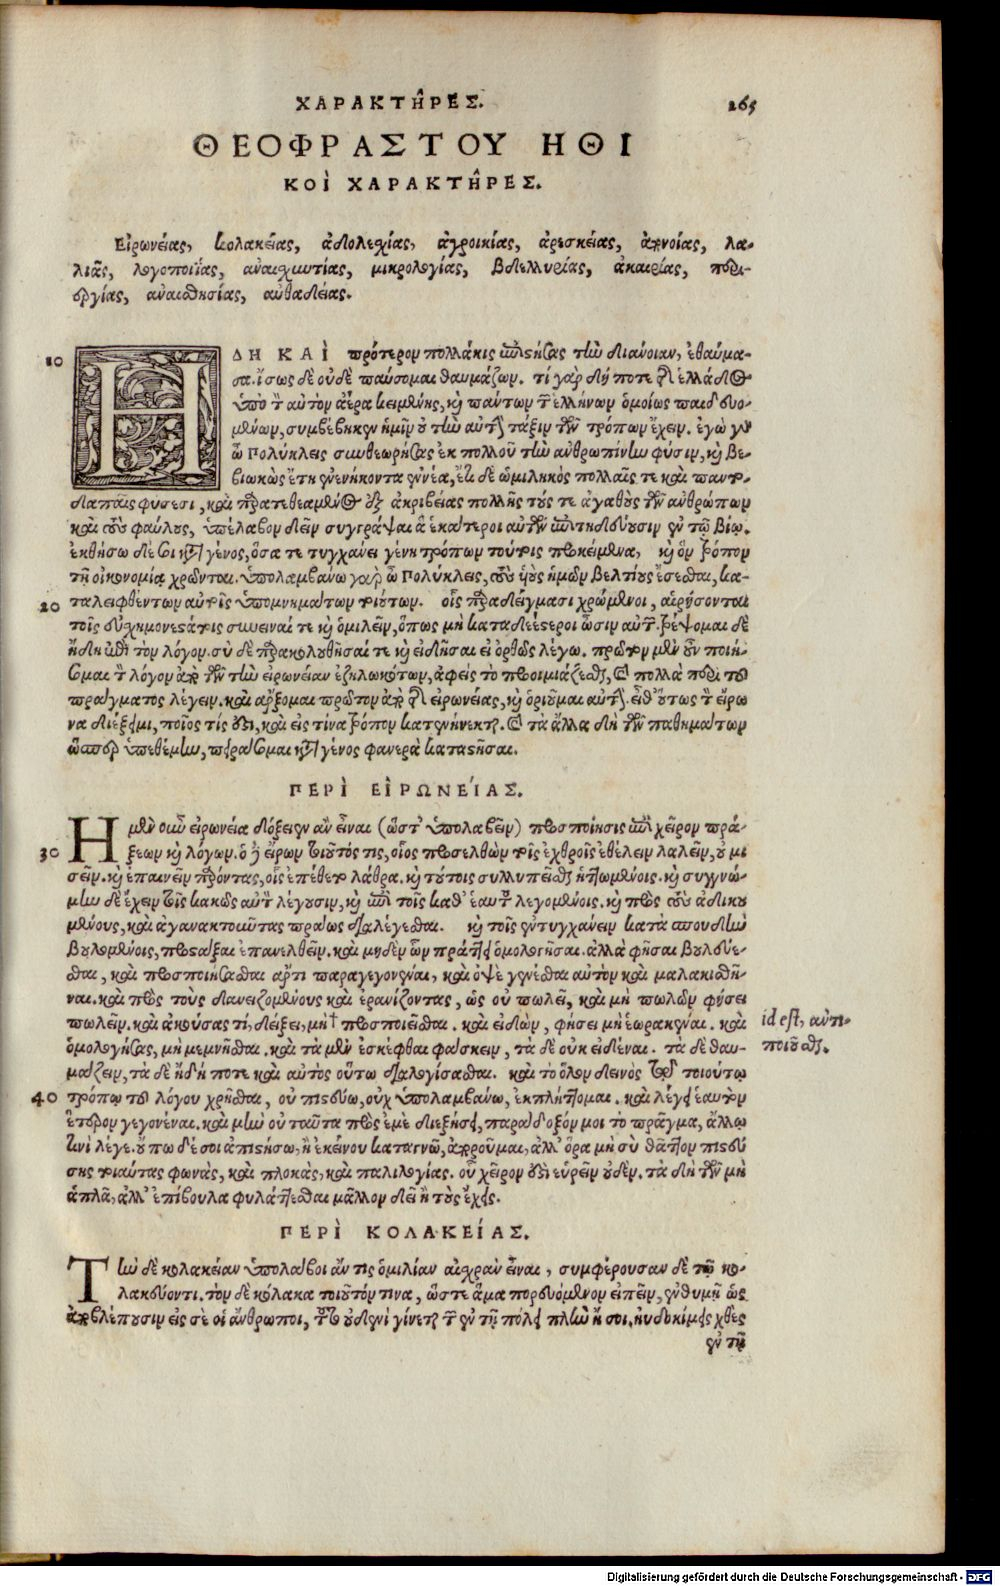 ΧΑΡΑΚΤῆΡΕΣ. 265
ΘΕΟΦΡΑΣΤΟΥ ΗΘΙ
ΚΟὶ ΧΑΡΑΚΤῆΡΕΣ.
Εἰρωνείας, κολακείας, ἀδολεχίας, ἀγροικίας, ἀρεσκείας, ἀπονοίας, λα-
λιᾶς, λογοποιΐας, ἀναισχυντίας, μικρολογίας, βδελλυρίας, ἀκαιρίας, περι-
εργίας, ἀναισθησίας, αὐθαδείας.
10 ΗΔΗ ΚΑὶ πρότερον πολλάκις ἐπιστήσας τὴν διάνοιαν, ἐθαύμα-
σα. ἴσως δὲ οὐδὲ παύσομαι θαυμάζων. τί γὰρ δή ποτε τῆς ἑλλάδος
ὑπὸ τὸν αὐτὸν ἀέρα κειμένης, καὶ πάντων τῶν ἑλλήνων ὁμοίως παιδευο-
μένων, συμβέβηκεν ἡμῖν οὐ τὴν αὐτὴν τάξιν τῶν τρόπων ἔχειν. ἐγὼ γὰρ
ὦ Πολύκλεις συνθεωρήσας ἐκ πολλοῦ τὴν ἀνθρωπίνην φύσιν, καὶ βε-
βιωκὼς ἔτη ἐνενήκοντα ἐννέα, ἔτι δὲ ὡμιληκὸς πολλαῖς τε καὶ παντο-
δαπαῖς φύσεσι, καὶ παρατεθεαμένος ἐξ ἀκριβείας πολλῆς τούς τε ἀγαθοὺς τῶν ἀνθρώπων
καὶ τοὺς φαύλους, ὑπέλαβον δεῖν συγγράψαι ἃ ἑκάτεροι αὐτῶν ἐπιτηδεύουσιν ἐν τῷ βίῳ.
ἐκθήσω δέ σοι κατὰ γένος, ὅσα τε τυγχάνει γένη τρόπων τούτοις προκείμενα, καὶ ὃν τρόπον
τῇ οἰκονομίᾳ χρῶνται. ὑπολαμβάνω γὰρ ὦ Πολύκλεις, τοὺς υἱοὺς ἡμῶν βελτίους ἔσεσθαι, κα-
20 ταλειφθέντων αὐτοῖς ὑπομνημάτων τοιούτων. οἷς παραδείγμασι χρώμενοι, αἱρήσονται
τοῖς εὐσχημονεστάτοις συνεῖναί τε καὶ ὁμιλεῖν, ὅπως μὴ καταδεέστεροι ὦσιν αὐτῶν. τρέψομαι δὲ
ἤδη ἐπὶ τὸν λόγον. σὺ δὲ παρακολουθῆσαί τε καὶ εἰδῆσαι εἰ ὀρθῶς λέγω. πρῶτον μὲν οὖν ποιή-
σομαι τὸν λόγον ἀπὸ τῶν τὴν εἰρωνείαν ἐζηλωκότων, ἀφεὶς τὸ προοιμιάζεσθαι, καὶ πολλὰ περὶ τοῦ
πράγματος λέγειν. καὶ ἄρξομαι πρῶτον ἀπὸ τῆς εἰρωνείας, καὶ ὁριοῦμαι αὐτήν. εἶθ' οὕτως τὸν εἴρω
να διέξειμι, ποῖός τίς ἐστι, καὶ εἰς τίνα τρόπον κατενήνεκται. καὶ τὰ ἄλλα δὴ τῶν παθημάτων
ὥσπερ ὑπεθέμην, πειράσομαι κατὰ γένος φανερὰ καταστῆσαι.
ΠΕΡὶ ΕἰΡΩΝΕίΑΣ.
Ἡ μὲν οὖν εἰρωνεία δόξειεν ἂν εἶναι (ὥς τύπῳ λαβεῖν) προσποίησις ἐπὶ χεῖρον πρά-
30 ξεων καὶ λόγων. ὁ δὲ εἴρων τοιοῦτός τις, οἷος προσελθὼν τοῖς ἐχθροῖς ἐθέλειν λαλεῖν, οὐ μι
σεῖν. καὶ ἐπαινεῖν παρόντας, οἷς ἐπέθετο λάθρα. καὶ τούτοις συλλυπεῖσθαι ἡττωμένοις. καὶ συγγνώ-
μην δὲ ἔχειν τοῖς κακῶς αὐτὸν λέγουσιν, καὶ ἐπὶ τοῖς καθ' ἑαυτοῦ λεγομένοις. καὶ πρὸς τοὺς ἀδικου
μένους, καὶ ἀγανακτοῦντας πράως διαλέγεσθαι. καὶ τοῖς ἐντυγχάνειν κατὰ σπουδὴν
βουλομένοις, προστάξαι ἐπανελθεῖν. καὶ μηδὲν ὧν πράττει ὁμολογῆσαι. ἀλλὰ φῆσαι βουλεύε-
σθαι, καὶ προσποιήσασθαι ἄρτι παραγεγονέναι, καὶ ὀψὲ γενέσθαι αὐτὸν καὶ μαλακισθῆ-
ναι. καὶ πρὸς τοὺς δανειζομένους καὶ ἐρανίζοντας, ὡς οὐ πωλεῖ, καὶ μὴ πωλῶν φήσει
πωλεῖν. καὶ ἀκούσας τί, δείξει, μὴ † προσποιεῖσθαι. καὶ εἰδὼν, φήσει μὴ ἑωρακέναι. καὶ
id est, ἀντι-
ποιεῖσθαι.
ὁμολογήσας, μὴ μεμνῆσθαι. καὶ τὰ μὲν ἐσκέφθαι φάσκειν, τὰ δὲ οὐκ εἰδέναι. τὰ δὲ θαυ-
μάζειν, τὰ δὲ ἤδή ποτε καὶ αὐτὸς οὕτω διαλογίσασθαι. καὶ τὸ ὅλον δεινὸς τῷ τοιούτῳ
40 τρόπῳ τοῦ λόγου χρῆσθαι, οὐ πιστεύω, οὐχ ὑπολαμβάνω, ἐκπλήττομαι. καὶ λέγει ἑαυτὸν
ἕτερον γεγονέναι. καὶ μὴν οὐ ταῦτα πρὸς ἐμὲ διεξήσει, παράδοξόν μοι τὸ πρᾶγμα, ἄλλῳ
τινὶ λέγε. ὅπω δέ σοι ἀπιστήσω, ἢ ἐκείνου καταγνῶ, ἀποροῦμαι, ἀλλ' ὅρα μὴ σὺ θᾶττον πιστεύ
σης τοιαύτας φωνὰς, καὶ πλοκὰς, καὶ παλιλογίας. οὗ χεῖρον ἐστὶ εὑρεῖν οὐδέν. τὰ δὴ τῶν μὴ
ἁπλᾶ, ἀλλ' ἐπίβουλα φυλάττεσθαι μᾶλλον δεῖ ἢ τοὺς ἔχεις.
ΠΕΡὶ ΚΟΛΑΚΕίΑΣ.
Τὴν δὲ κολακείαν ὑπολάβοι ἄν τις ὁμιλίαν αἰσχρὰν εἶναι, συμφέρουσαν δὲ τῷ κο-
λακεύοντι. τὸν δὲ κόλακα τοιοῦτόν τινα, ὥστε ἅμα πορευόμενον εἰπεῖν, ἐνθυμῇ ὡς
ἀποβλέπουσιν εἰς σὲ οἱ ἄνθρωποι, τοῦτο οὐδενὶ γίνεται τῶν ἐν τῇ πόλει πλὴν ἤ σοι. ηὐδοκίμεις χθὲς
ἐν τῇ
Digitalisierung gefördert durch die Deutsche Forschungsgemeinschaft - DFG